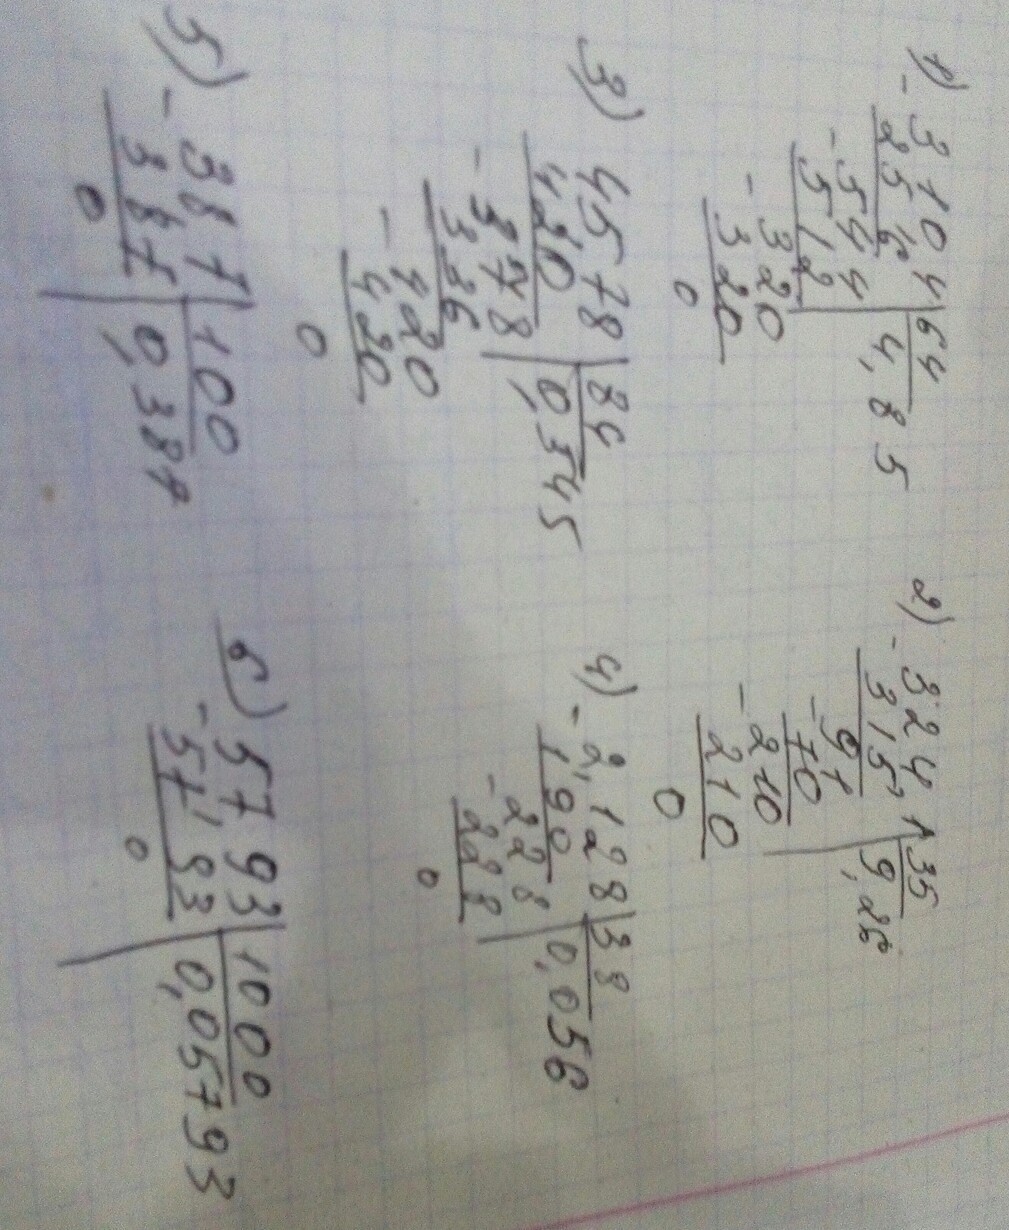 1) - 3104 | 64
256 | 4,85
- 544
512
- 320
320
0
2) - 3241 | 35
315 | 9,26
- 91
70
- 210
210
0
3) 4578 | 84
420 | 0,545
- 378
336
- 420
420
0
4) - 2,128 | 38
190 | 0,056
- 228
228
0
5) - 38,7 | 100
38,7 | 0,387
0
6) - 5793 | 1000
57,93 | 0,05793
0